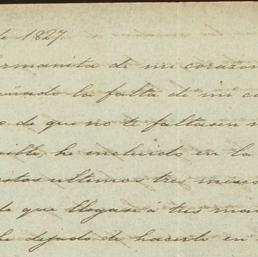 de 1827.
ermanita de mi corazon
ñado la falta de mi ca
o de que no te faltasen n
sible he incluido en la
stos ultimos tres meses
de que llegase á tus man
he dejado de hacerlo en